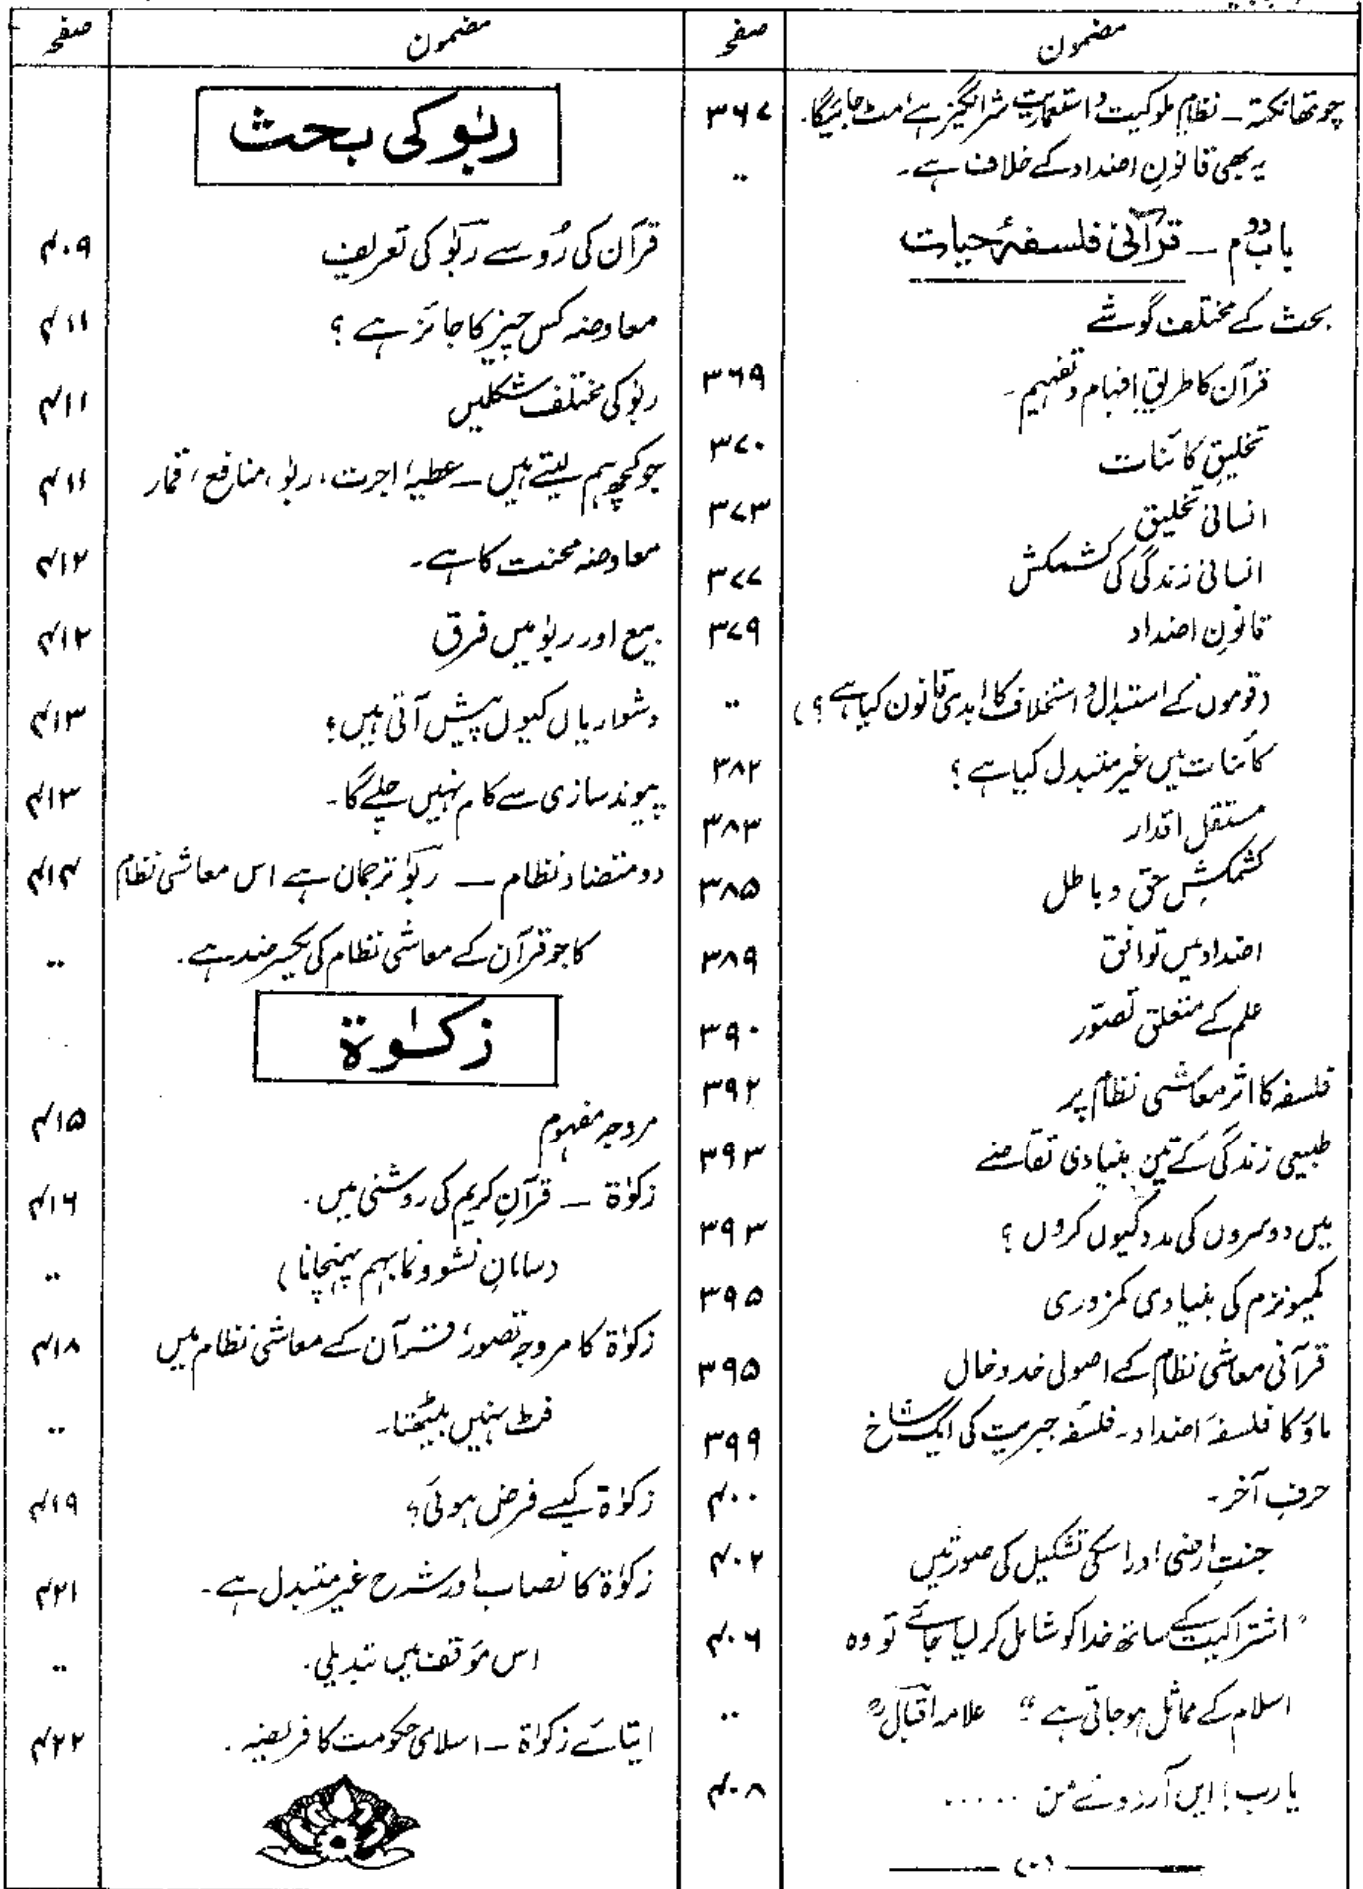 مضمون صفحہ
چوتھا نکتہ ۔ نظامِ ملوکیت و استعماریت شر انگیز ہے، مٹ جائیگا۔ ۳۶۷
یہ بھی قانونِ اضداد کے خلاف ہے۔ "
باب دوم ۔ قرآنی فلسفۂ حیات
بحث کے مختلف گوشے
قرآن کا طریقِ افہام و تفہیم۔ ۳۶۹
تخلیقِ کائنات ۳۷۰
انسانی تخلیق ۳۷۳
انسانی زندگی کی کشمکش ۳۷۷
قانونِ اضداد ۳۷۹
(قوموں کے استبدال و استخلاف کا ابدی قانون کیا ہے؟) "
کائنات میں غیر متبدل کیا ہے؟ ۳۸۲
مستقل اقدار ۳۸۳
کشمکشِ حق و باطل ۳۸۵
اضداد میں توافق ۳۸۹
علم کے متعلق تصوّر ۳۹۰
فلسفہ کا اثر معاشی نظام پر ۳۹۲
طبیعی زندگی کے تین بنیادی تقاضے ۳۹۳
میں دوسروں کی مدد کیوں کروں؟ ۳۹۳
کمیونزم کی بنیادی کمزوری ۳۹۵
قرآنی معاشی نظام کے اصولی خدوخال ۳۹۵
ماؤ کا فلسفۂ اضداد۔ فلسفۂ جبریت کی ایک شاخ ۳۹۹
حرفِ آخر۔ ۴۰۰
جنتِ ارضی اور اسکی تشکیل کی صورتیں ۴۰۲
"اشتراکیت کے ساتھ خدا کو شامل کر لیا جائے تو وہ ۴۰۶
اسلام کے مماثل ہو جاتی ہے" علامہ اقبالؒ "
یا رب! ایں آرزوئے من ..... ۴۰۸
مضمون صفحہ
ربٰو کی بحث
قرآن کی رُو سے ربٰو کی تعریف ۴۰۹
معاوضہ کس چیز کا جائز ہے؟ ۴۱۱
ربٰو کی مختلف شکلیں ۴۱۱
جو کچھ ہم لیتے ہیں ۔ عطیہ، اجرت، ربٰو، منافع، قمار ۴۱۱
معاوضہ محنت کا ہے۔ ۴۱۲
بیع اور ربٰو میں فرق ۴۱۲
دشواریاں کیوں پیش آتی ہیں؟ ۴۱۳
پیوند سازی سے کام نہیں چلے گا۔ ۴۱۳
دو متضاد نظام ۔ ربٰو ترجمان ہے اس معاشی نظام ۴۱۴
کا جو قرآن کے معاشی نظام کی یکسر ضد ہے۔ "
زکوٰة
مروجہ مفہوم ۴۱۵
زکوٰة ۔ قرآنِ کریم کی روشنی میں۔ ۴۱۶
(سامانِ نشوونما بہم پہنچانا) "
زکوٰة کا مروجہ تصور، قرآن کے معاشی نظام میں ۴۱۸
فٹ نہیں بیٹھتا۔ "
زکوٰة کیسے فرض ہوئی؟ ۴۱۹
زکوٰة کا نصاب اور شرح غیر متبدل ہے۔ ۴۲۱
اس مؤقف میں تبدیلی۔ "
ایتائے زکوٰة ۔ اسلامی حکومت کا فریضہ۔ ۴۲۲